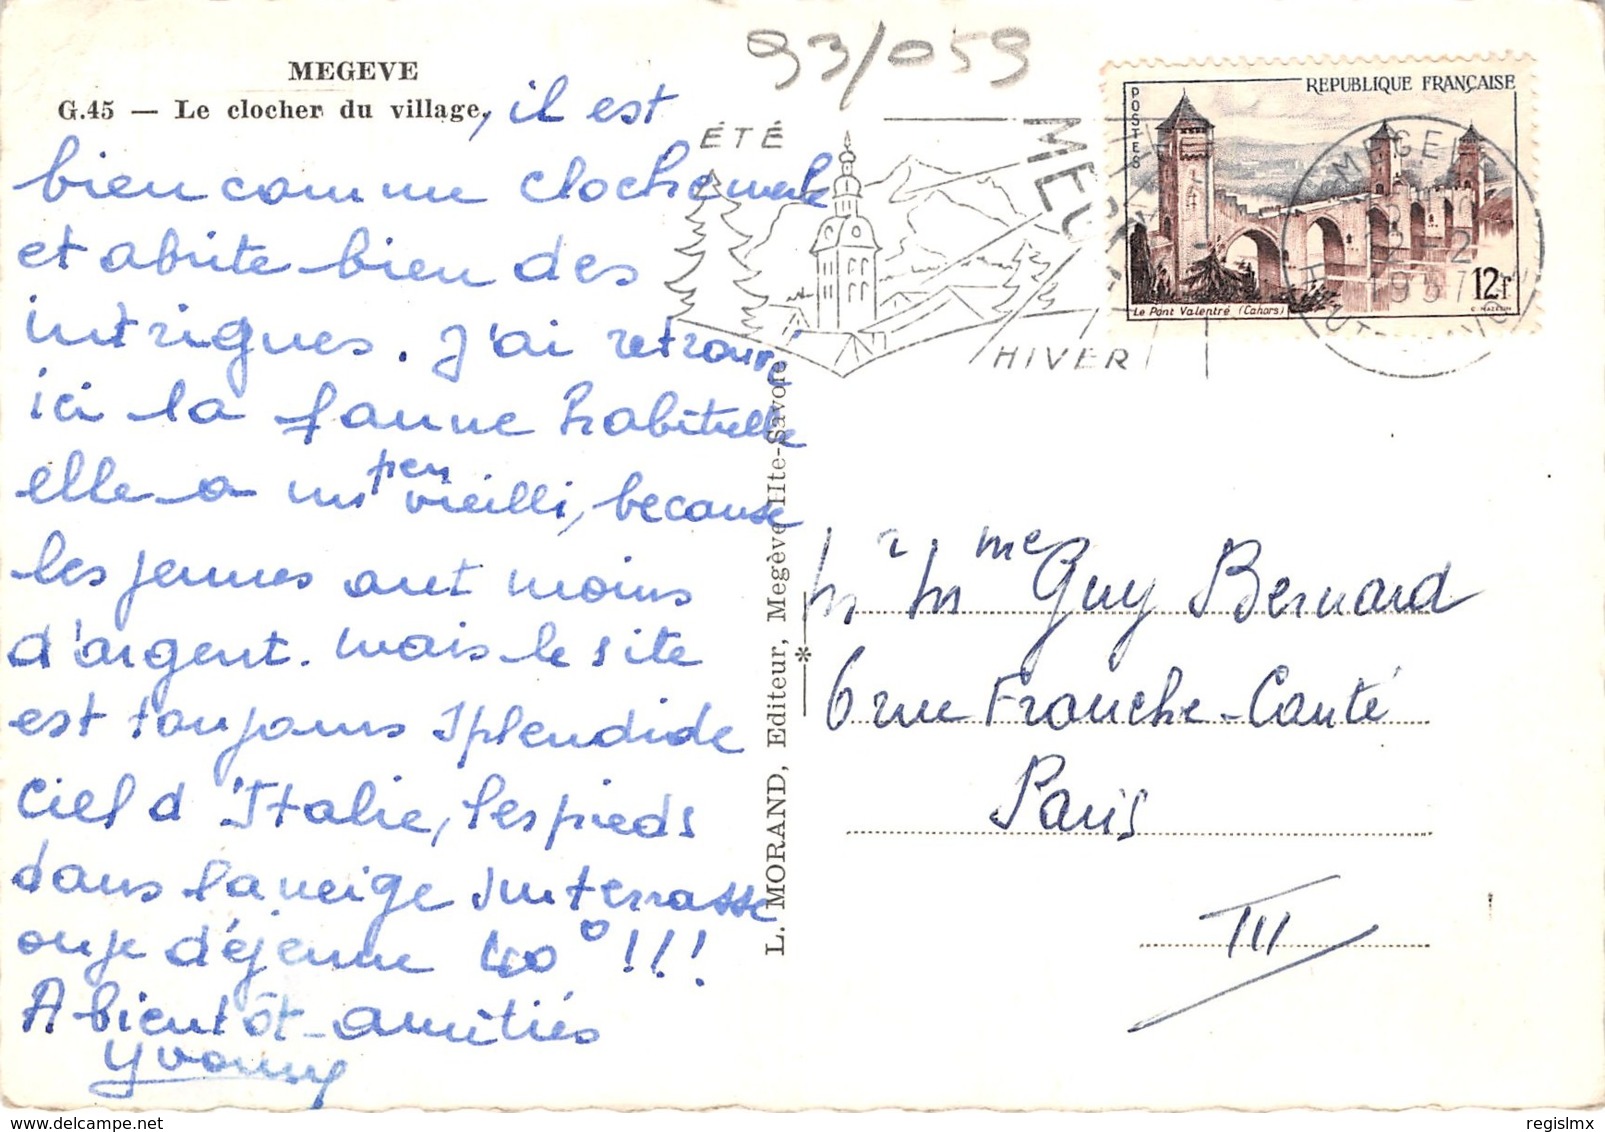 93/059
MEGEVE
G.45 — Le clocher du village, il est
bien comme clochemerle
et abrite bien des
intrigues. J'ai retrouvé
ici la faune habituelle
elle a un peu vieilli, because
les jeunes ont moins
d'argent. mais le site
est toujours splendide
Ciel d'Italie, les pieds
dans la neige sur terrasse
ou je déjeune 40° !!!
A bientôt - amitiés
Yvonny
L. MORAND, Editeur, Megève Hte-Savoie
ÉTÉ
HIVER
REPUBLIQUE FRANÇAISE
POSTES
Le Pont Valentré (Cahors)
12f
MEGEVE
1957
Mr Mme Guy Bernard
6 rue Franche-Comté
Paris
III
delcampe.net
regislmx